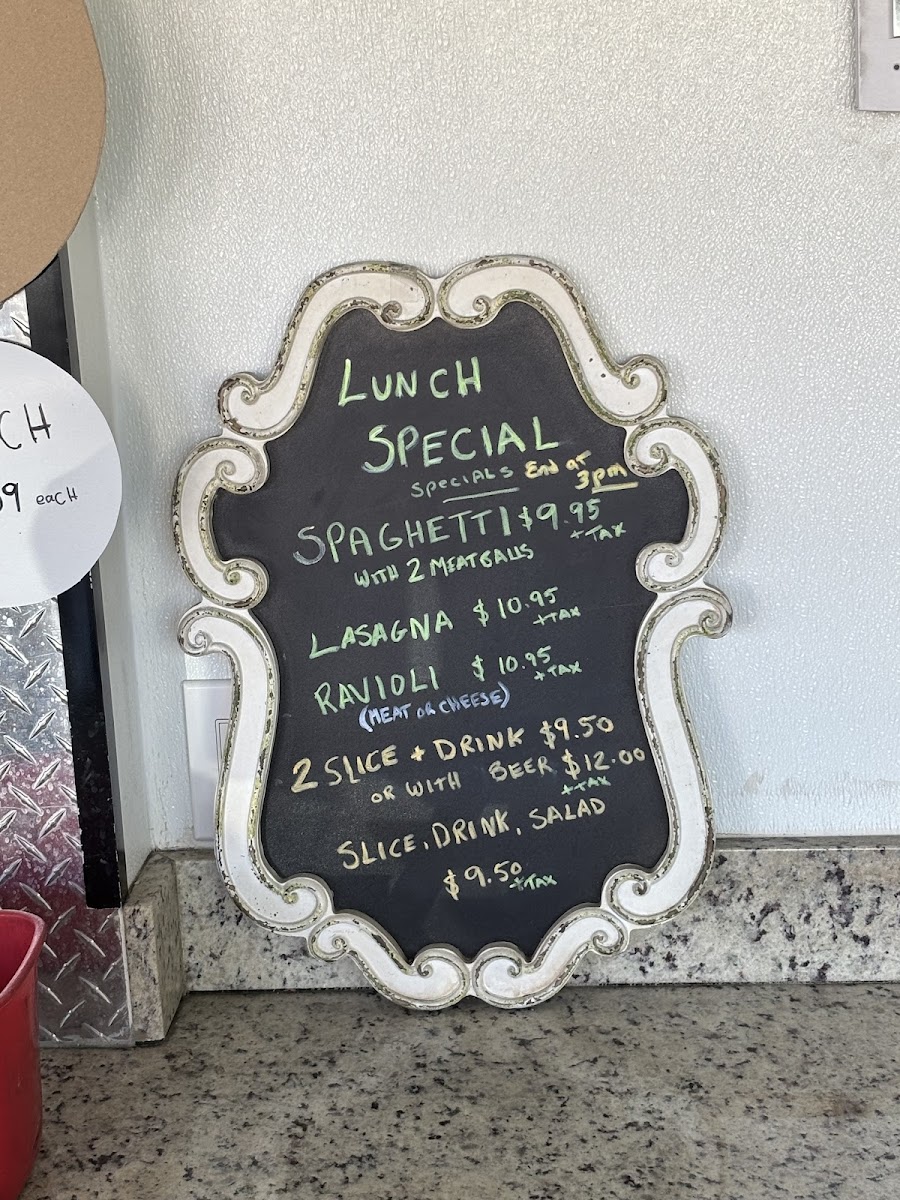 LUNCH
SPECIAL
SPECIALS End at
3pm
SPAGHETTI $9.95
+TAX
WITH 2 MEATBALLS
LASAGNA $10.95
+TAX
RAVIOLI $10.95
+TAX
(MEAT OR CHEESE)
2 SLICE + DRINK $9.50
OR WITH BEER $12.00
+TAX
SLICE, DRINK, SALAD
$9.50
+TAX
eacH